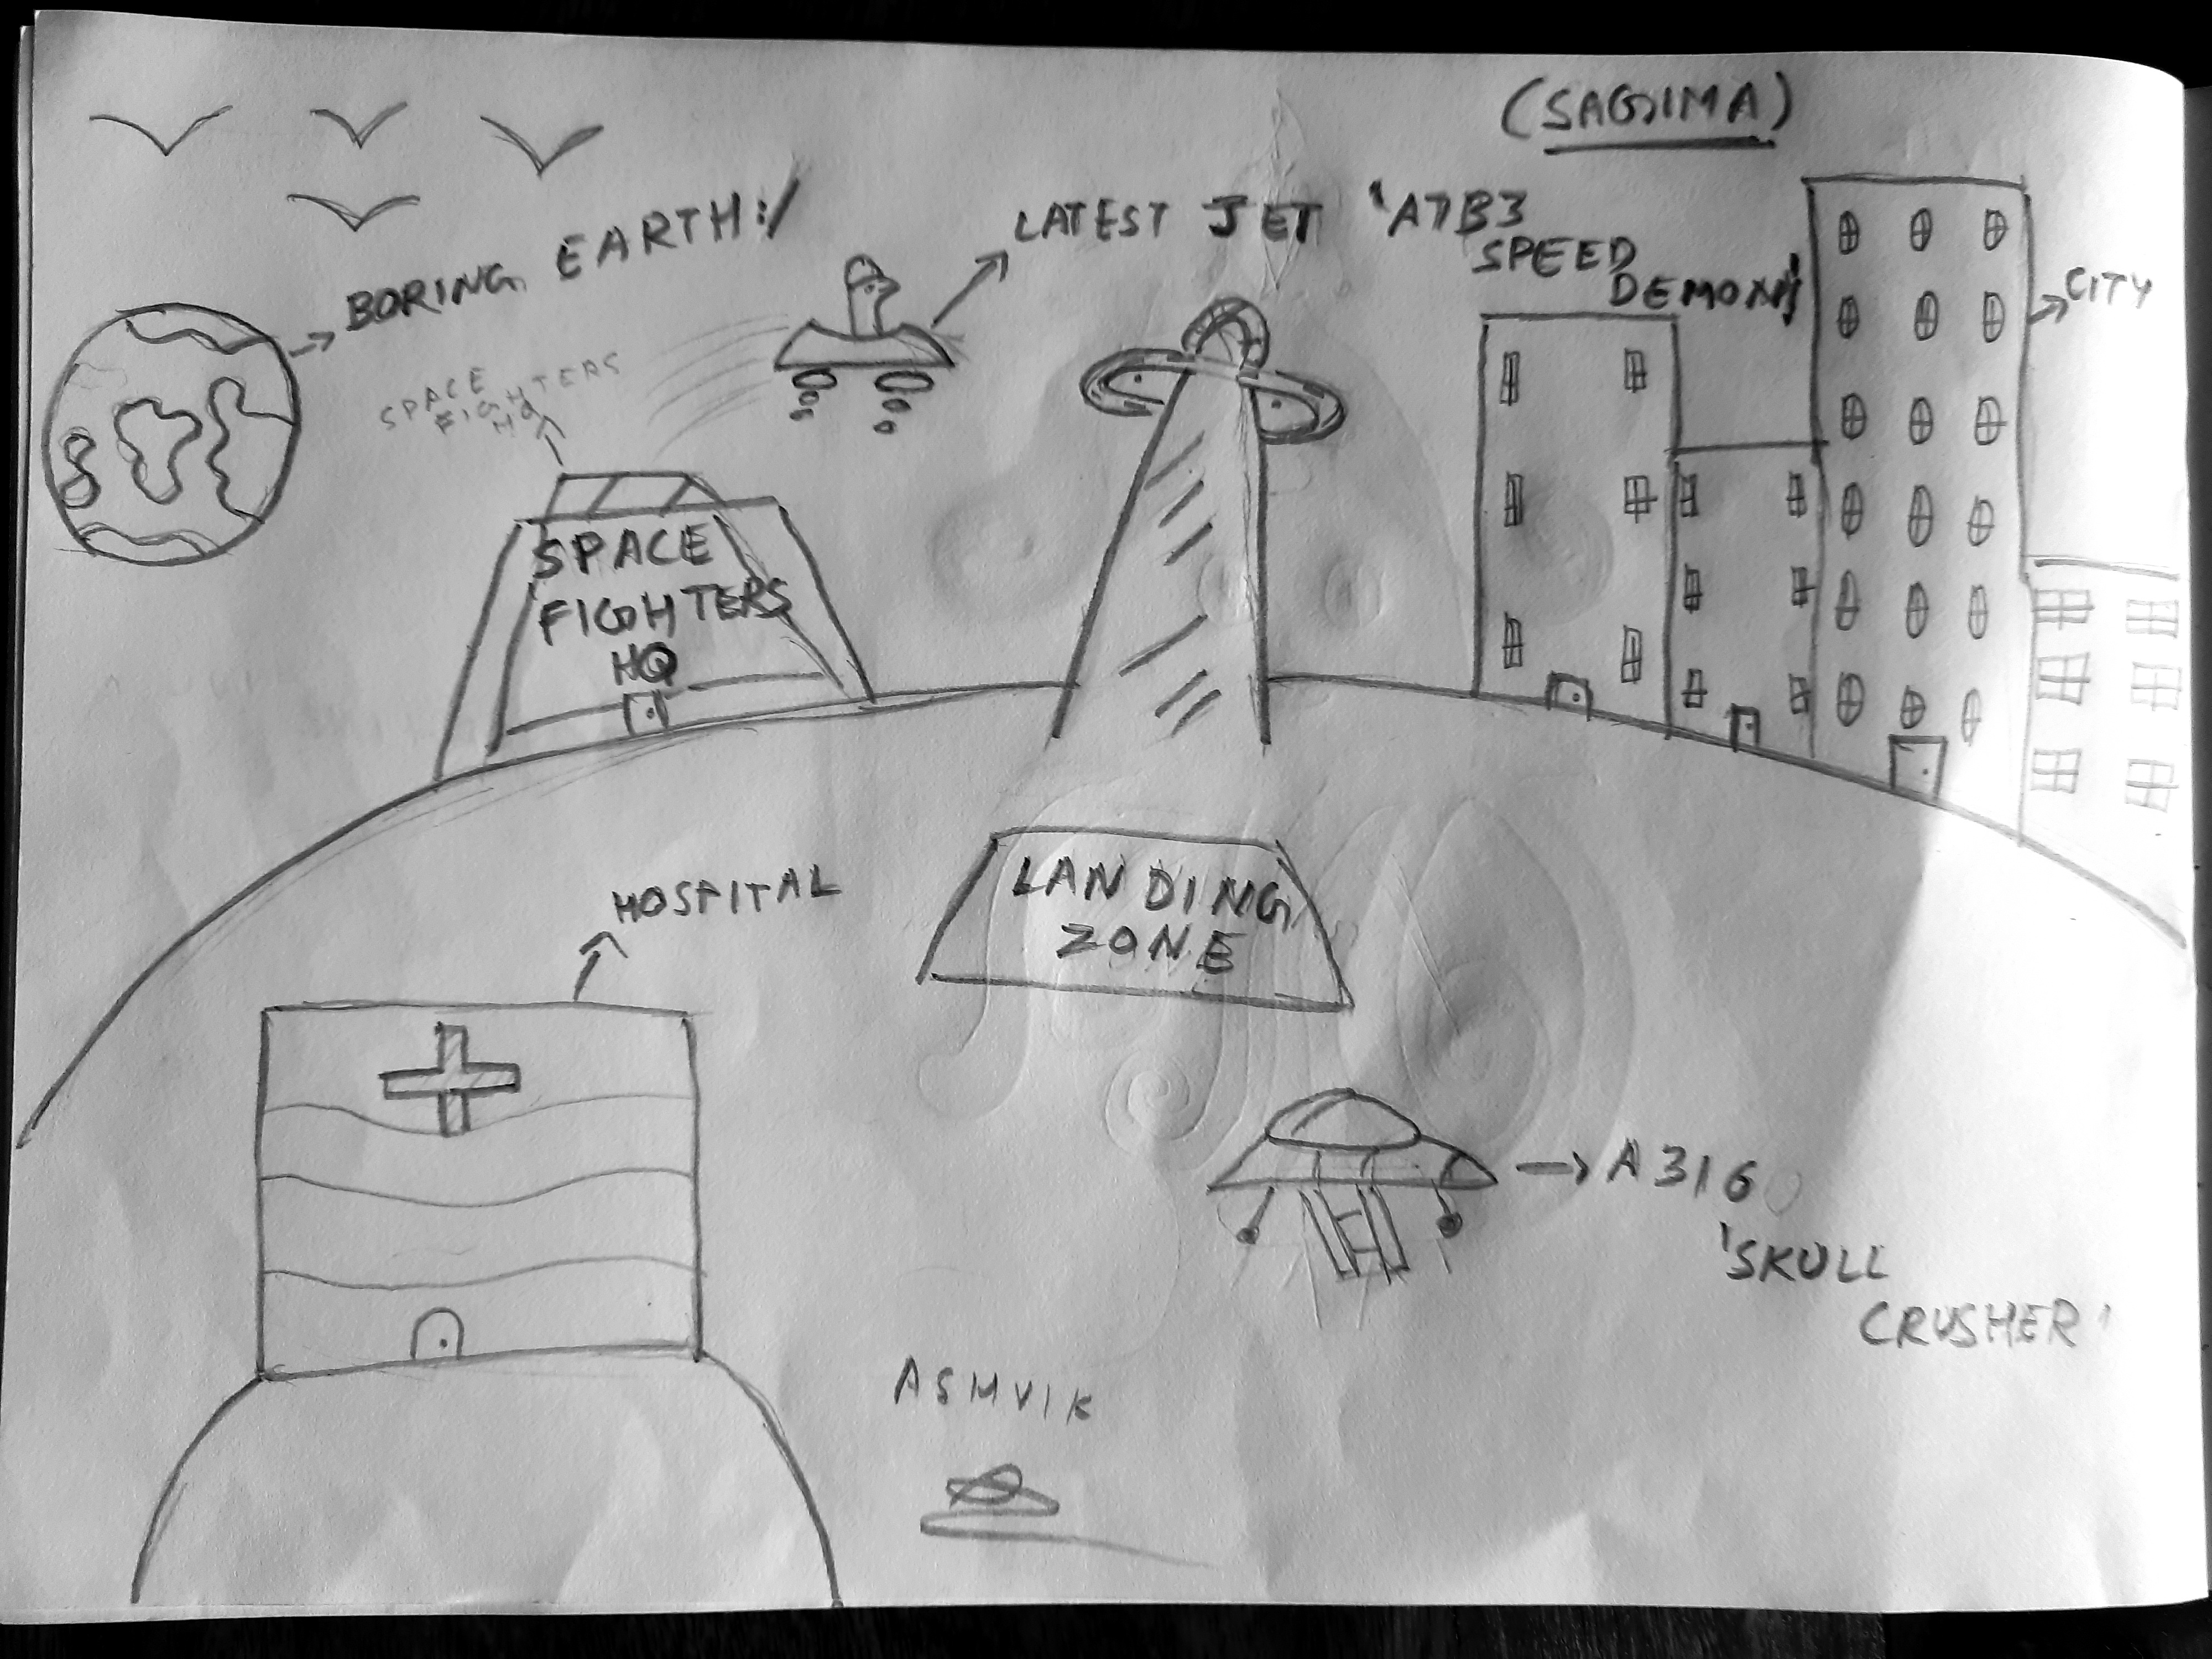 (SAGIMA)
BORING EARTH:/
LATEST JET 'A7B3
SPEED
DEMON'
CITY
SPACE
FIGHTERS
HQ
SPACE
FIGHTERS
HQ
LANDING
ZONE
HOSPITAL
A316
'SKULL
CRUSHER'
ASHVIK